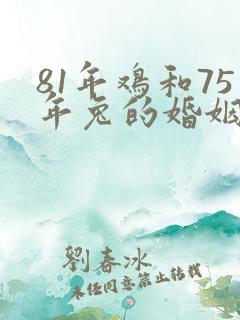 81年鸡和75
年兔的婚姻
劉春冰
未经同意禁止转载